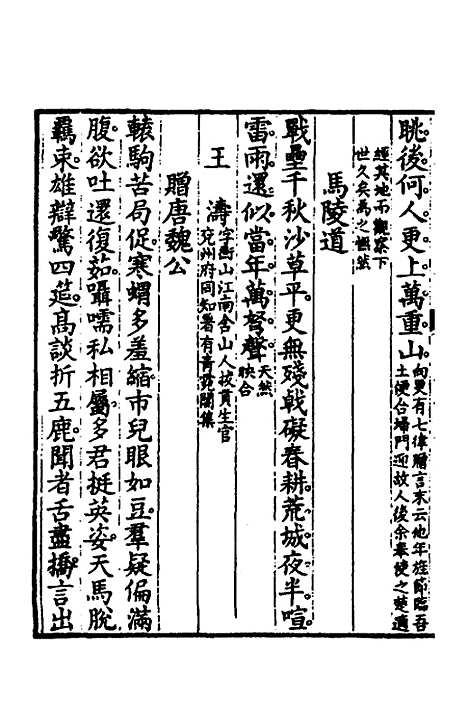 眺後何人更上萬重山向叟有七律贈言末云他年旌節臨吾
土便合埽門迎故人後余奉使之楚適
經其地不覿寮下
世久矣爲之悵然
馬陵道
戰壘千秋沙草平更無殘戟礙春耕荒城夜半喧
雷雨還似當年萬弩聲天然
映合
王濤字衡山江南含山人拔貢生官
兗州府同知著有青霓閣集
贈唐魏公
轅駒苦局促寒蝟多羞縮市兒眼如豆羣疑偏滿
腹欲吐還復茹囁嚅私相屬多君挺英姿天馬脫
羈束雄辯驚四筵高談折五鹿聞者舌盡撟言出